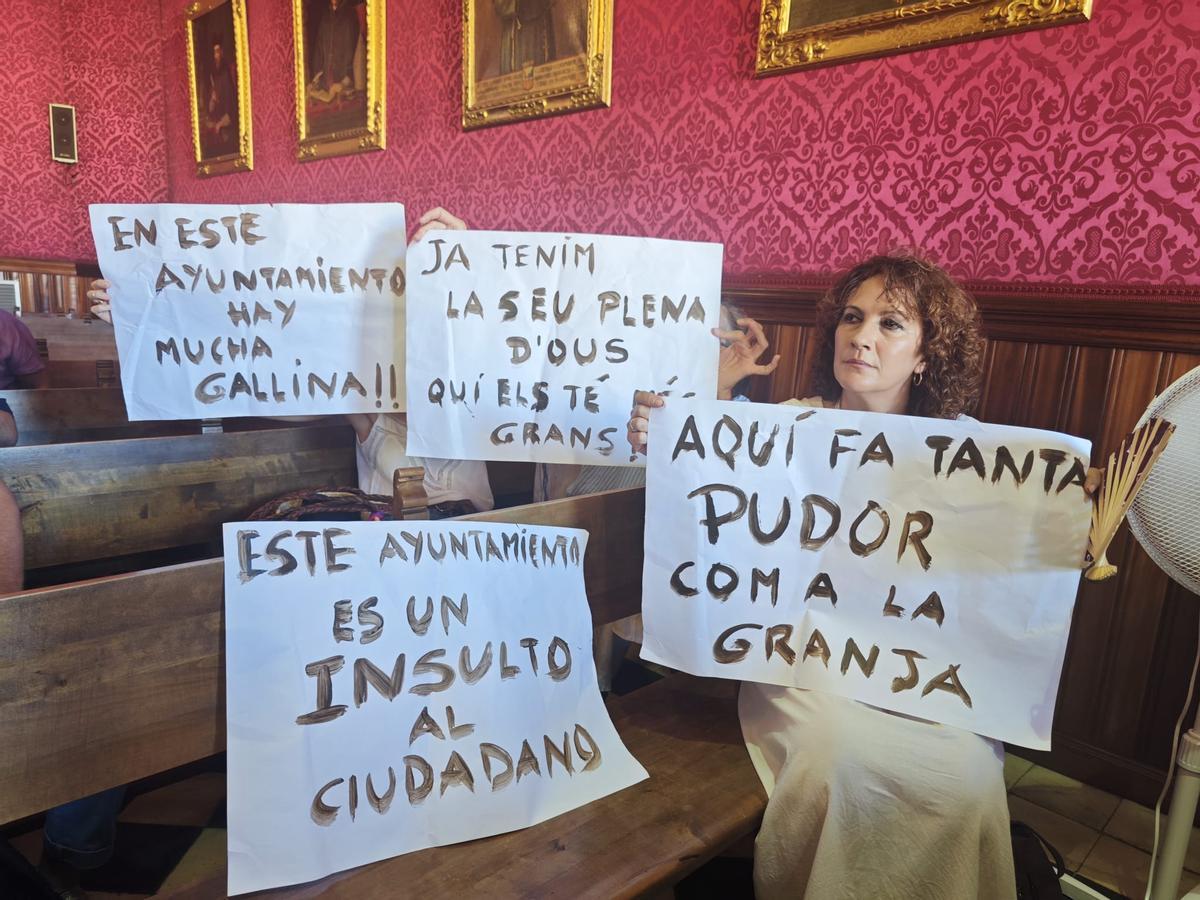 EN ESTE
AYUNTAMIENTO
HAY
MUCHA
GALLINA!!
JA TENIM
LA SEU PLENA
D'OUS
QUÍ ELS TÉ MÉS
GRANS
AQUÍ FA TANTA
PUDOR
COM A LA
GRANJA
ESTE AYUNTAMIENTO
ES UN
INSULTO
AL
CIUDADANO